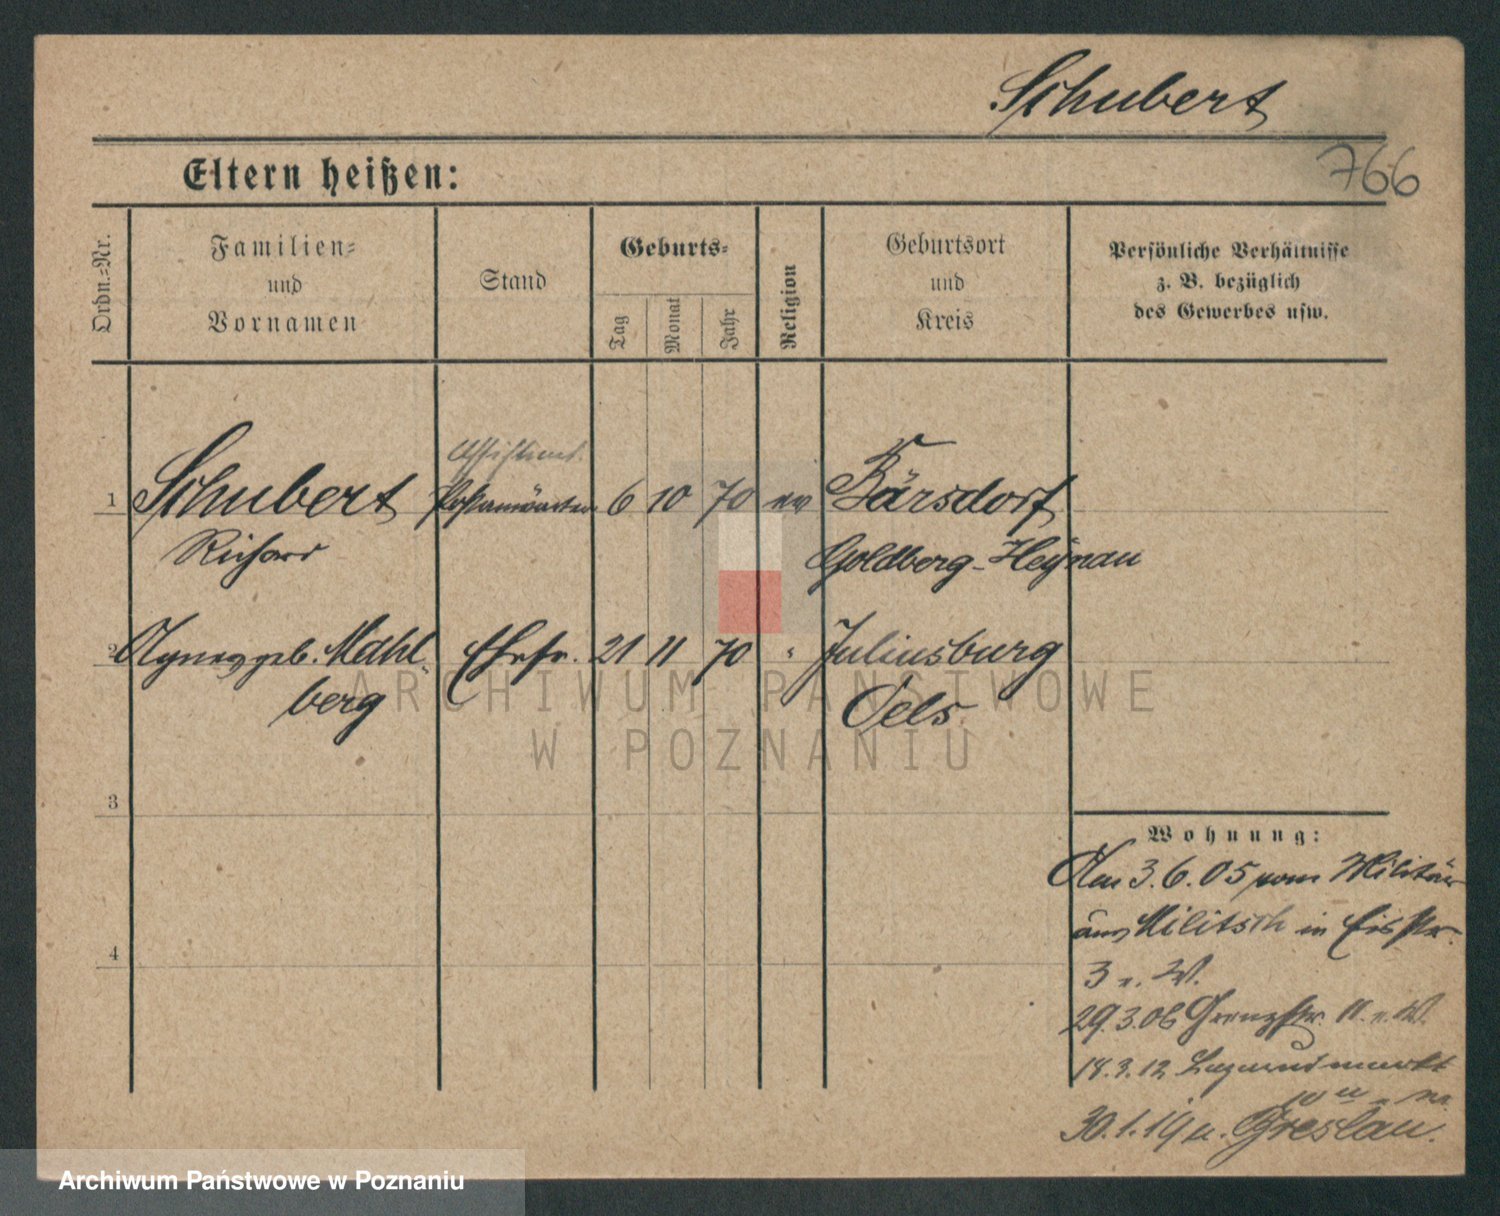 Schubert
766
Eltern heißen:
Ordn.-Nr.
Familien-
und
Vornamen
Stand
Geburts-
Tag
Monat
Jahr
Religion
Geburtsort
und
Kreis
Persönliche Verhältnisse
z. B. bezüglich
des Gewerbes usw.
Assistent.
1 Schubert 6 10 70 ev Bärsdorf
Richard Goldberg-Heynau
2 Agnes geb. Mahl- Ehefr. 21 11 70 " Juliusburg
berg Oels
ARCHIWUM PAŃSTWOWE
W POZNANIU
3
4
Wohnung:
Am 3.6.05 vom Militär
aus Militsch in
3 n. W.
29.3.06 Grenzstr. 11 n. W.
12
30.1.19 n. Breslau.
Archiwum Państwowe w Poznaniu